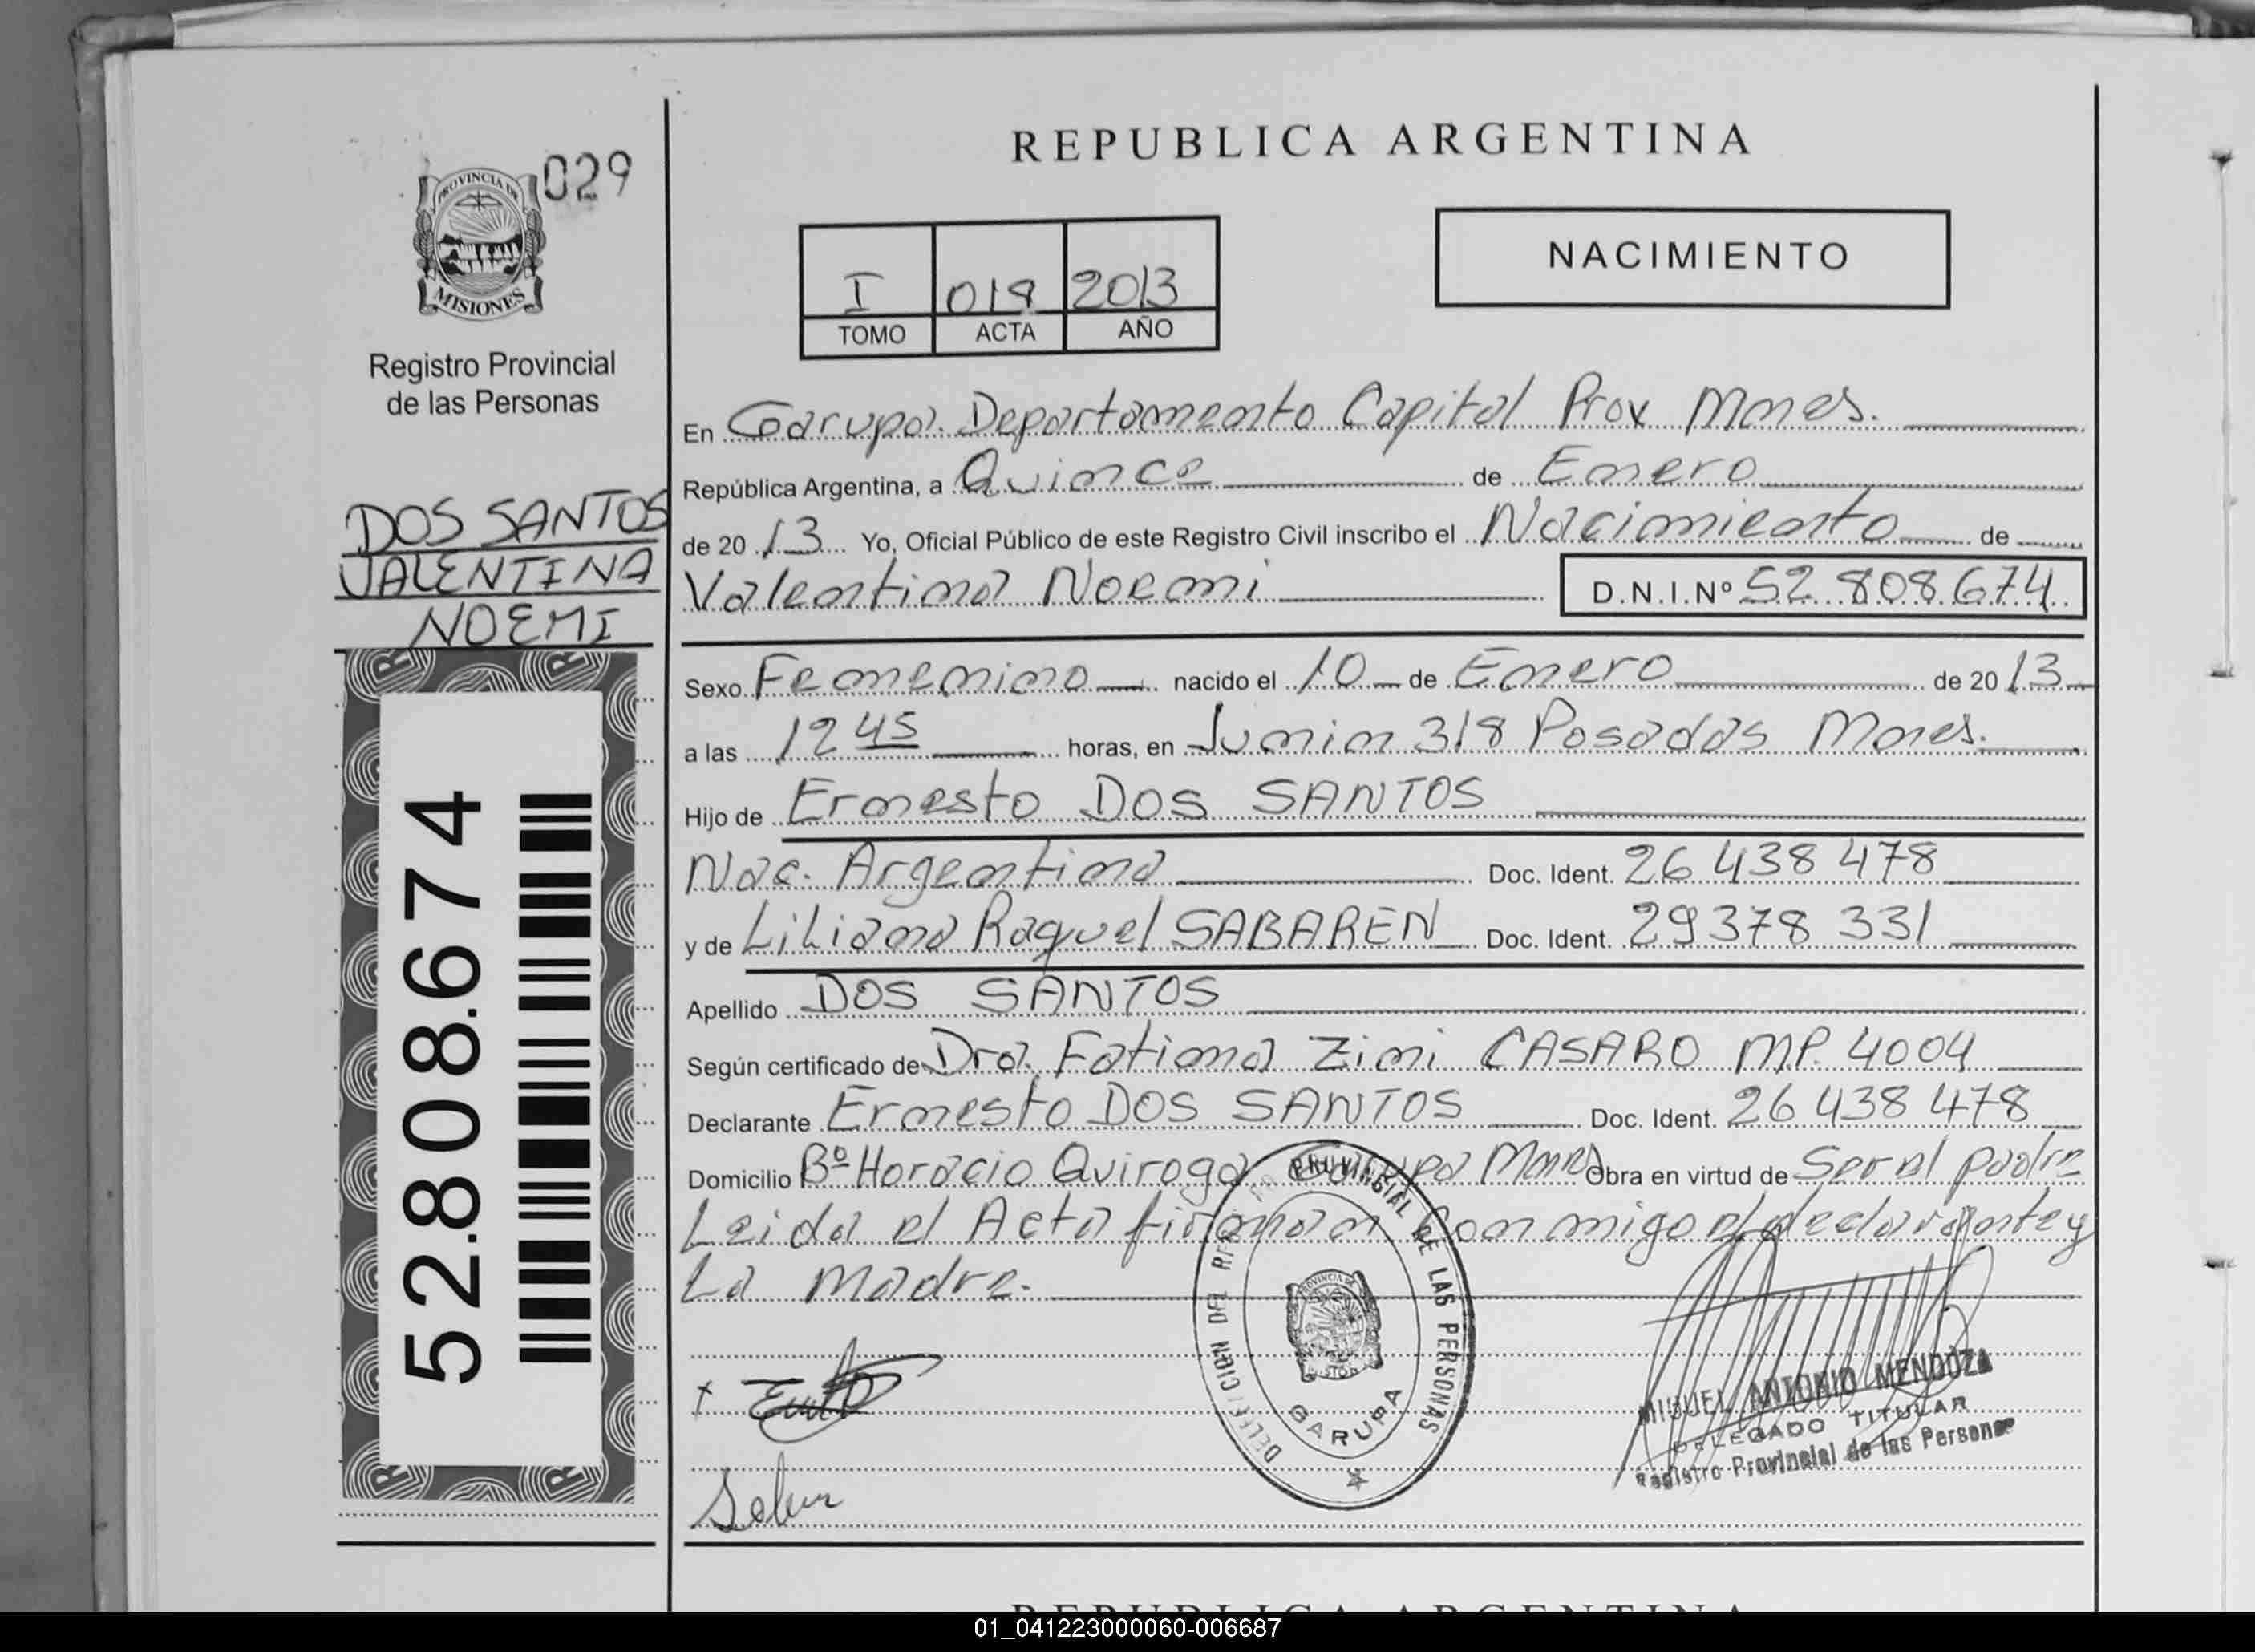 REPUBLICA ARGENTINA
029
PROVINCIA DE
MISIONES
NACIMIENTO
I 019 2013
TOMO ACTA AÑO
Registro Provincial
de las Personas
En Garupa. Departamento Capital Prov Mnes.
República Argentina, a Quince de Enero
DOS SANTOS
VALENTINA
NOEMI
de 20 13 Yo, Oficial Público de este Registro Civil inscribo el Nacimiento de
Valentina Noemi D.N.I.Nº 52.808.674
Sexo Femenino nacido el 10 de Enero de 20 13
a las 12 45 horas, en Junin 318 Posadas Mnes.
Hijo de Ernesto DOS SANTOS
Nac. Argentina Doc. Ident. 26 438 478
y de Liliana Raquel SABAREN Doc. Ident. 29378 331
Apellido DOS SANTOS
Según certificado de Dra. Fatima Zini CASARO M.P. 4004
Declarante Ernesto DOS SANTOS Doc. Ident. 26 438 478
Domicilio Bº Horacio Quiroga Garupa Mnes Obra en virtud de Ser el padre
Leida el Acta firman conmigo el declarante y
La Madre.
52.808.674
PROVINCIAL DE LAS PERSONAS
GARUPA
MIGUEL ANTONIO MENDOZA
DELEGADO TITULAR
Registro Provincial de las Personas
REPUBLICA ARGENTINA
01_041223000060-006687